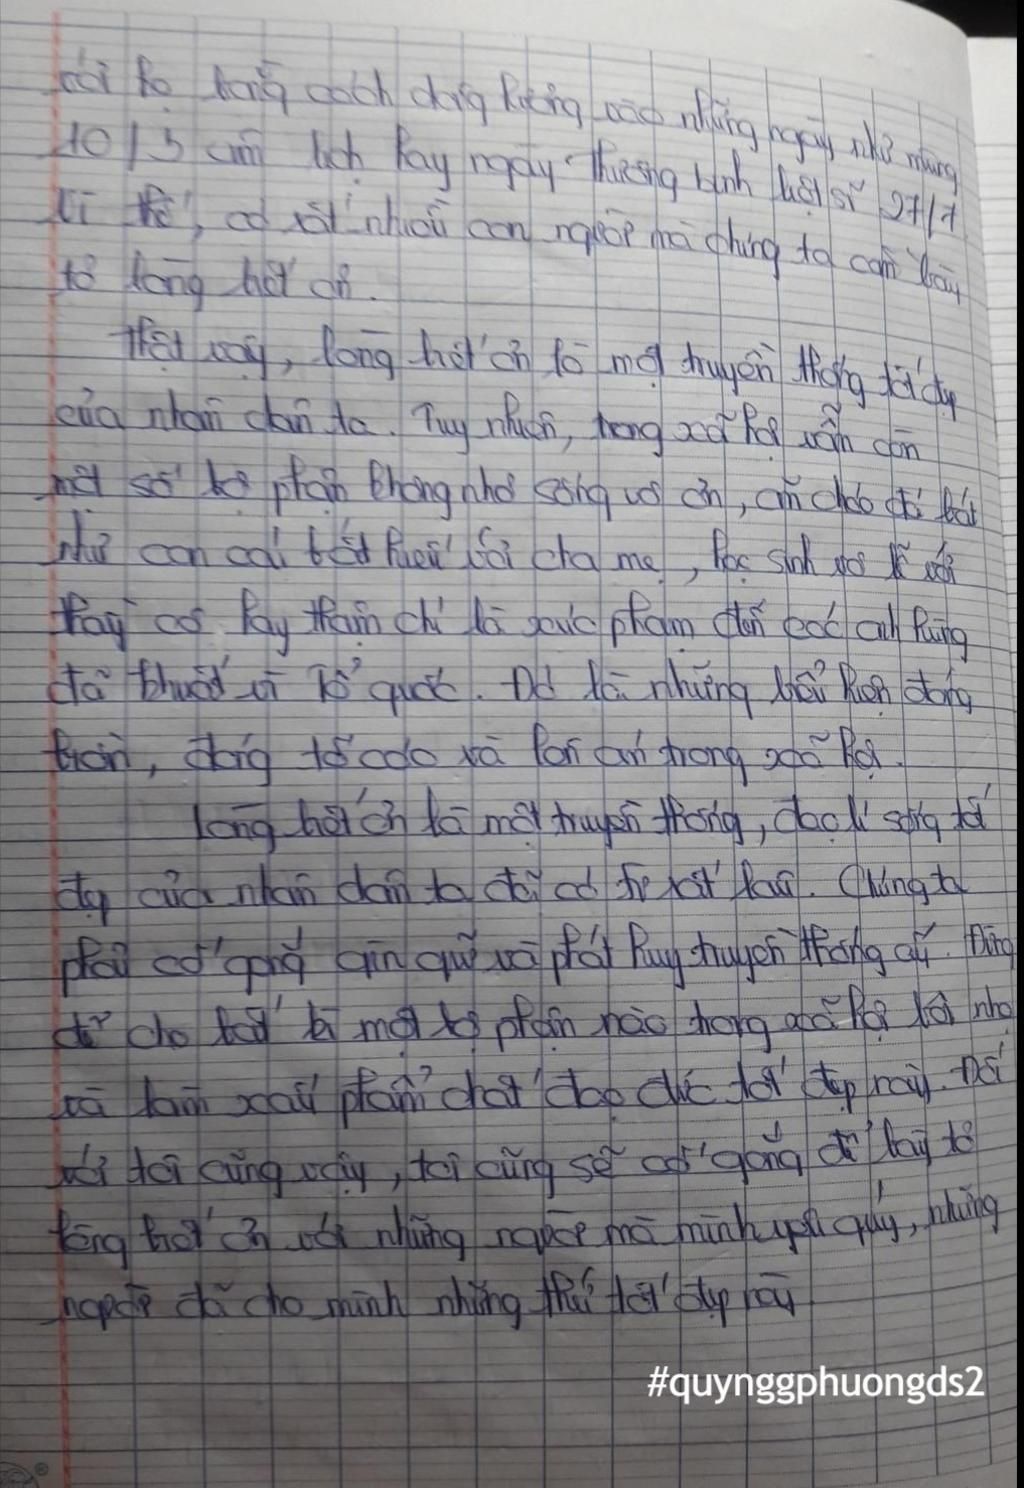 với họ bằng cách dâng hương vào những ngày như mùng
10/3 âm lịch hay ngày thương binh liệt sĩ 27/7
Vì thế, có rất nhiều con người mà chúng ta cần bày
tỏ lòng biết ơn.
Thật vậy, lòng biết ơn là một truyền thống tốt đẹp
của nhân dân ta. Tuy nhiên, trong xã hội vẫn còn
một số bộ phận không nhỏ sống vô ơn, ăn cháo đá bát
như con cái bất hiếu với cha mẹ, học sinh vô lễ với
thầy cô hay thậm chí là xúc phạm đến các anh hùng
đã khuất vì Tổ quốc. Đó là những biểu hiện đáng
trách, đáng tố cáo và lên án trong xã hội.
Lòng biết ơn là một truyền thống, đạo lí sống tốt
đẹp của nhân dân ta đã có từ rất lâu. Chúng ta
phải cố gắng gìn giữ và phát huy truyền thống ấy. Đừng
để cho bất kì một bộ phận nào trong xã hội bôi nhọ
và làm xấu phẩm chất đạo đức tốt đẹp này. Đối
với tôi cũng vậy, tôi cũng sẽ cố gắng để bày tỏ
lòng biết ơn với những người mà mình yêu quý, những
người đã cho mình những thứ tốt đẹp này
#quynggphuongds2